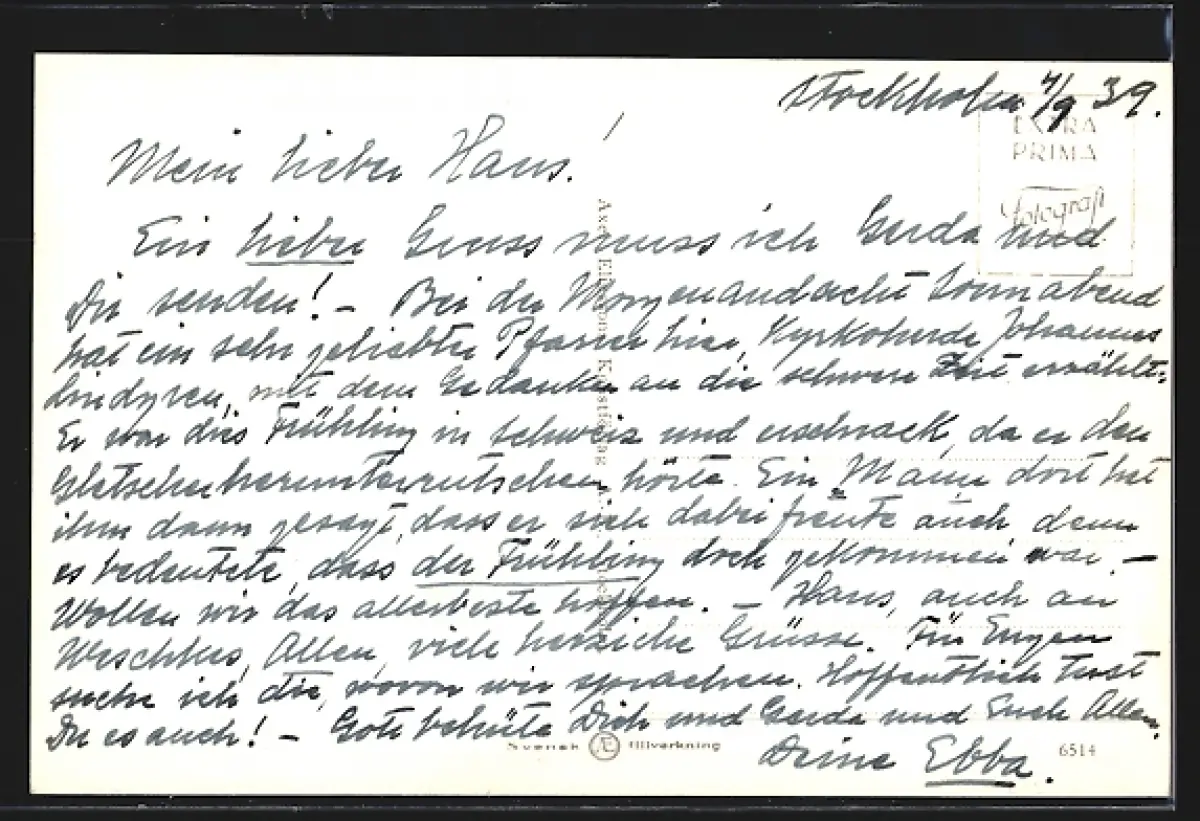 Stockholm 4/9 39.
EXTRA
PRIMA
Fotografi
Mein lieber Hans!
Ein lieber Gruss muss ich Gerda und
Dir senden! – Bei der Morgenandacht Sonnabend
hat ein sehr geliebter Pfarrer hier, Kyrkoherde Johannes
Lindgren, mit dem Gedanken an die schwere Zeit erzählt:
Er war dies Frühling in Schweiz und erschrack, da er den
Gletscher herunterrutschen hörte. Ein Mann dort hat
ihm dann gesagt, dass er sich dabei freute auch denn
es bedeutete, dass der Frühling doch gekommen war. –
Wollen wir das allerbeste hoffen. – Hans, auch an
Allen, viele herzliche Grüsse. Für Eugen
suche ich die, wovon wir sprachen. Hoffentlich tust
Du es auch! – Gott behüte Dich und Gerda und Euch Allen.
Deine Ebba.
Svensk Æ tillverkning
6514